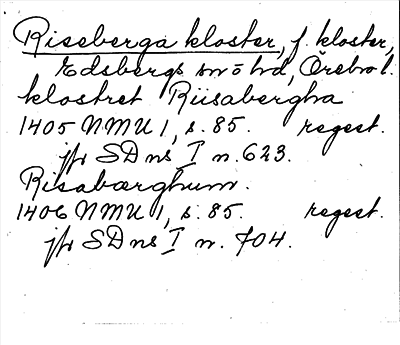 Riseberga kloster, f. kloster,
Edsbergs sn o hd, Örebro l.
klostret Riisabergha
1405 NMU 1, s. 85. regest.
jfr SDns I n. 623.
Risabærghum.
1406 NMU 1, s. 85. regest.
jfr SDns I n. 704.